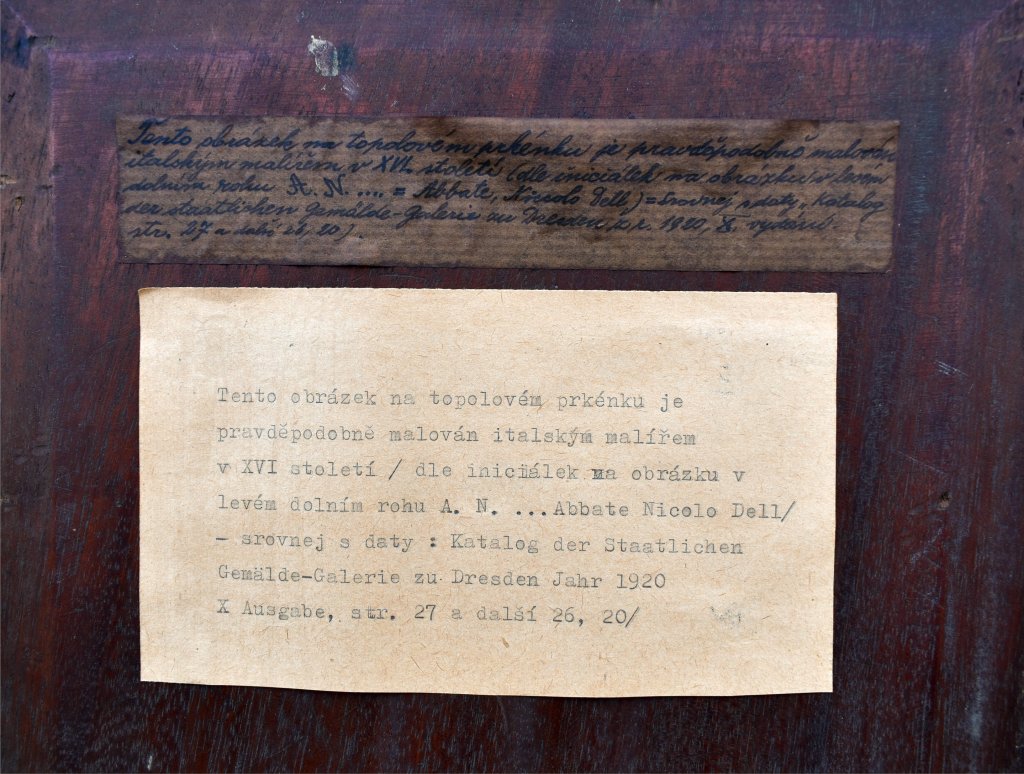 Tento obrázek na topolovém prkénku je pravděpodobně malován
italským malířem v XVI. století (dle iniciálek na obrázku v levém
dolním rohu A. N. .... = Abbate, Nicolo Dell) = Srovnej s daty „Katalog
der staatlichen Gemälde-Galerie zu Dresden z r. 1920, X. vydání
str. 27 a další 26, 20).
Tento obrázek na topolovém prkénku je
pravděpodobně malován italským malířem
v XVI století / dle iniciálek na obrázku v
levém dolním rohu A. N. ...Abbate Nicolo Dell/
- srovnej s daty : Katalog der Staatlichen
Gemälde-Galerie zu Dresden Jahr 1920
X Ausgabe, str. 27 a další 26, 20/